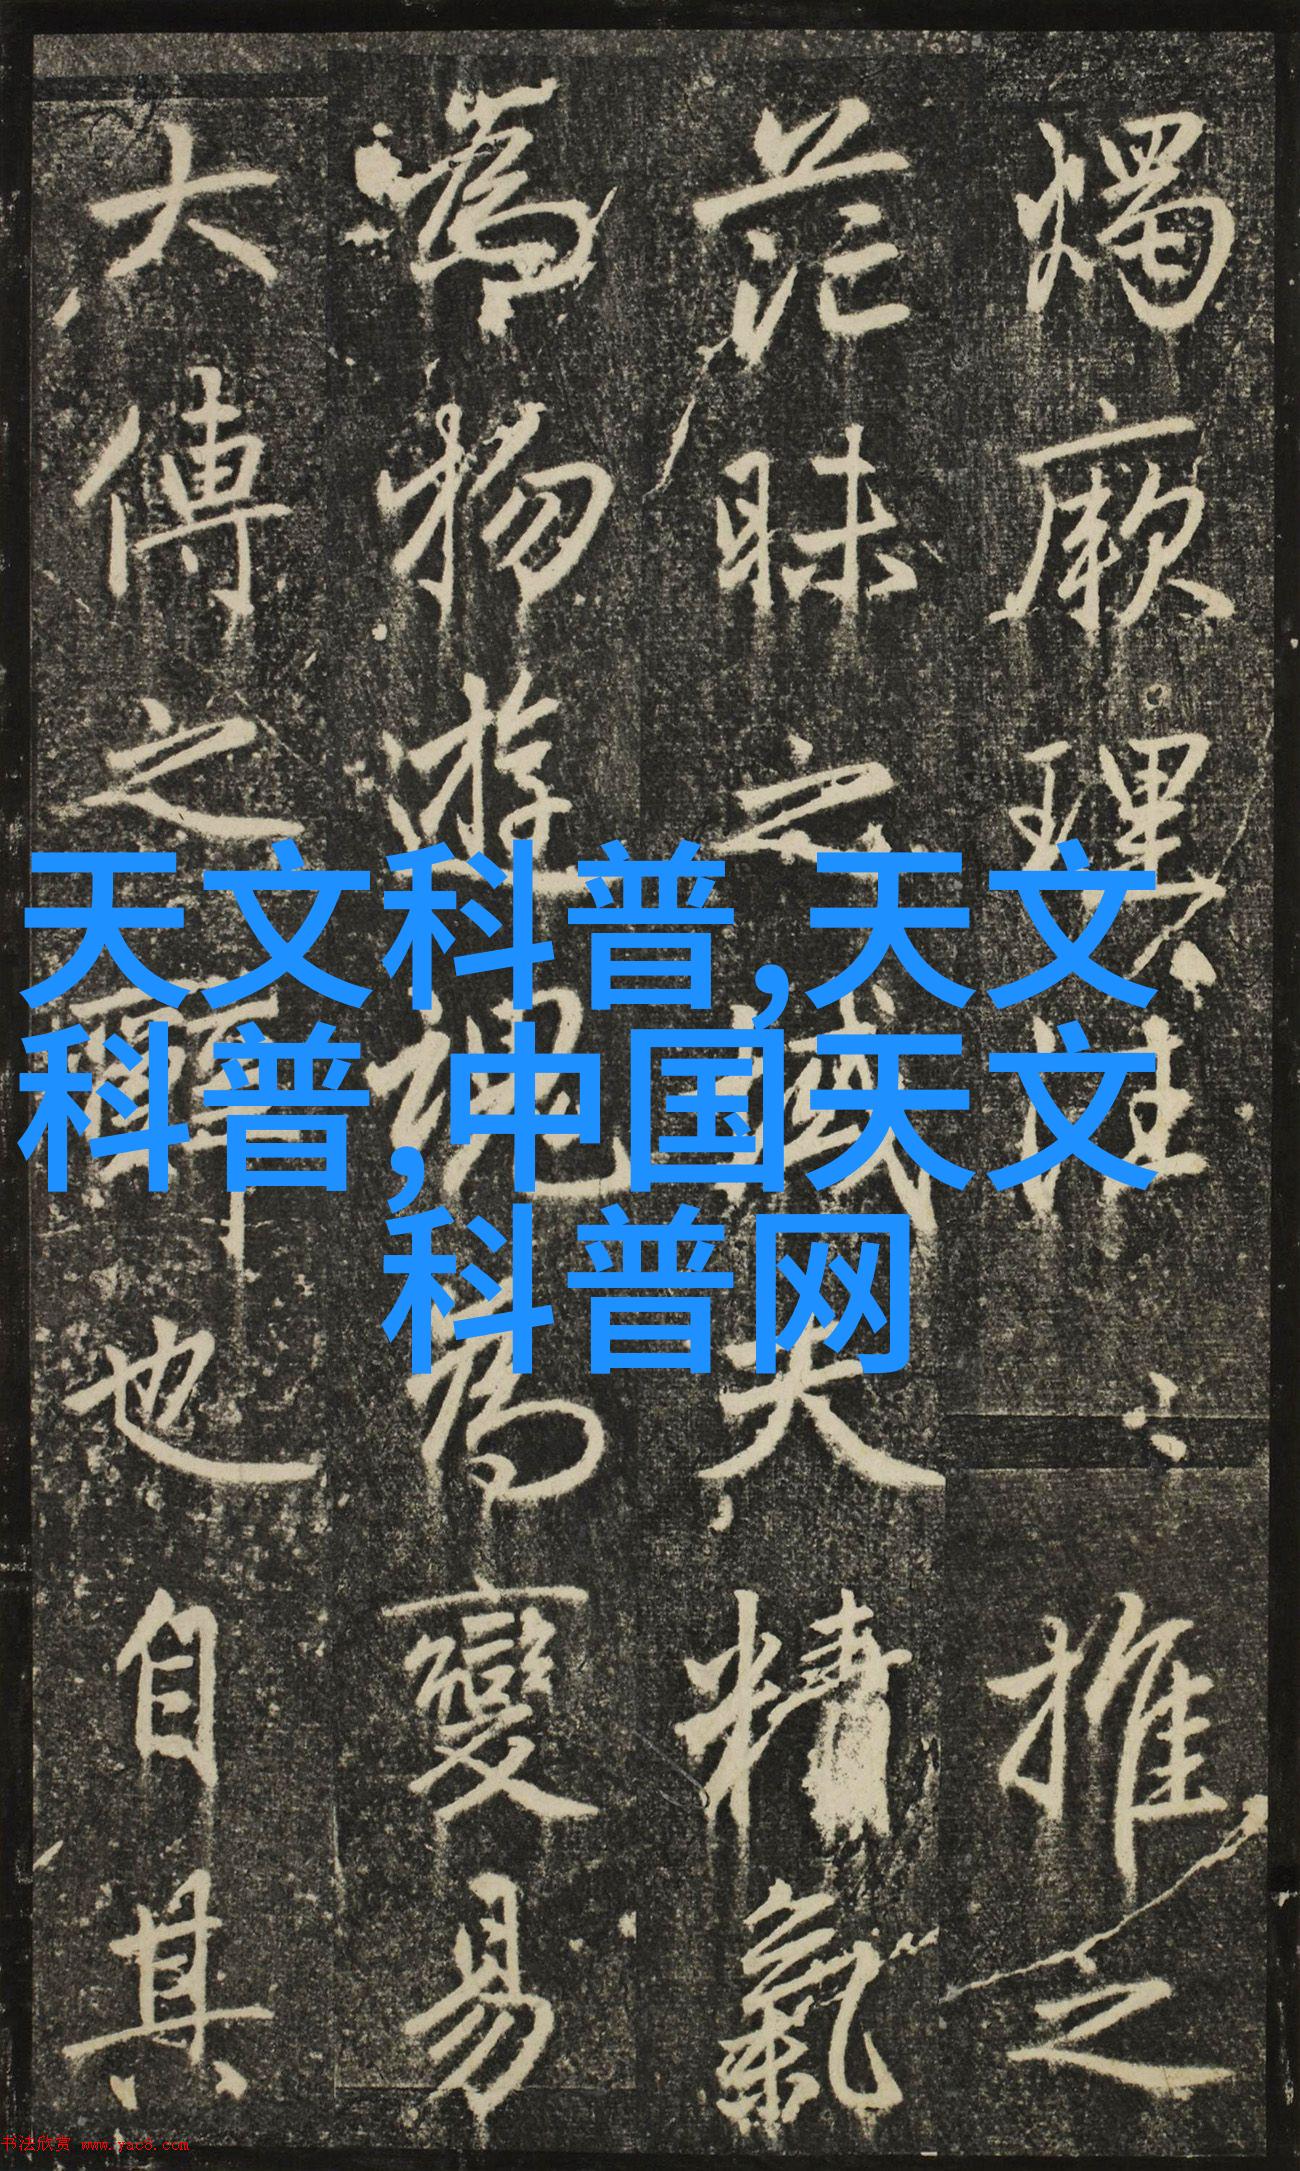 燭厥理惟推之
茫昧之域夫精氣
為物遊魂為變易
大傳之辭也自其
天文科普,天文
科普,中国天文
科普网
书法欣赏 www.yac8.com